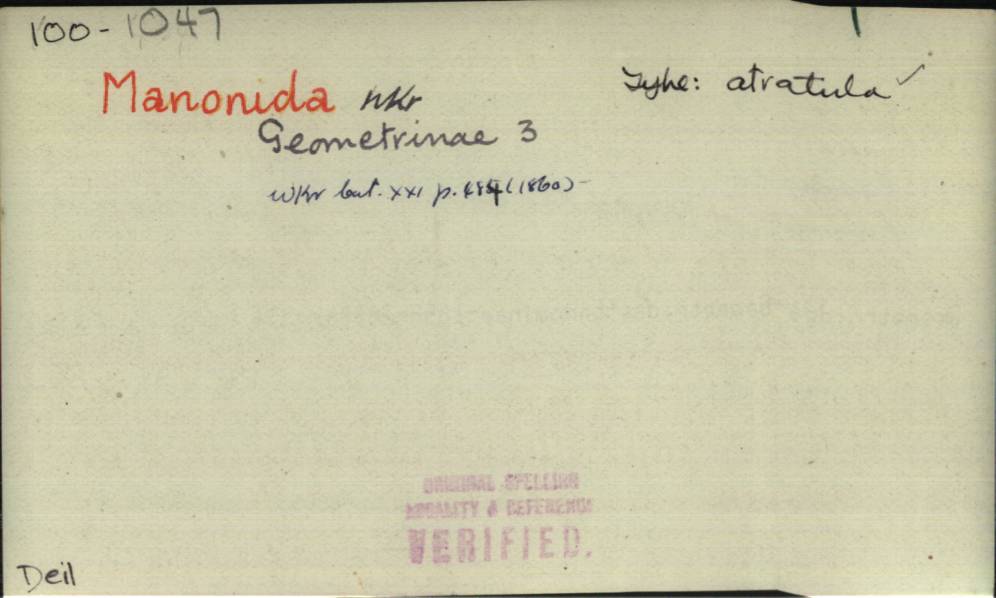 100-1047
Manonida Wkr
Type: atratula ✓
Geometrinae 3
Wkr Cat. XXI p. 484 (1860) -
ORIGINAL SPELLING
LOCALITY & REFERENCE
VERIFIED.
Deil